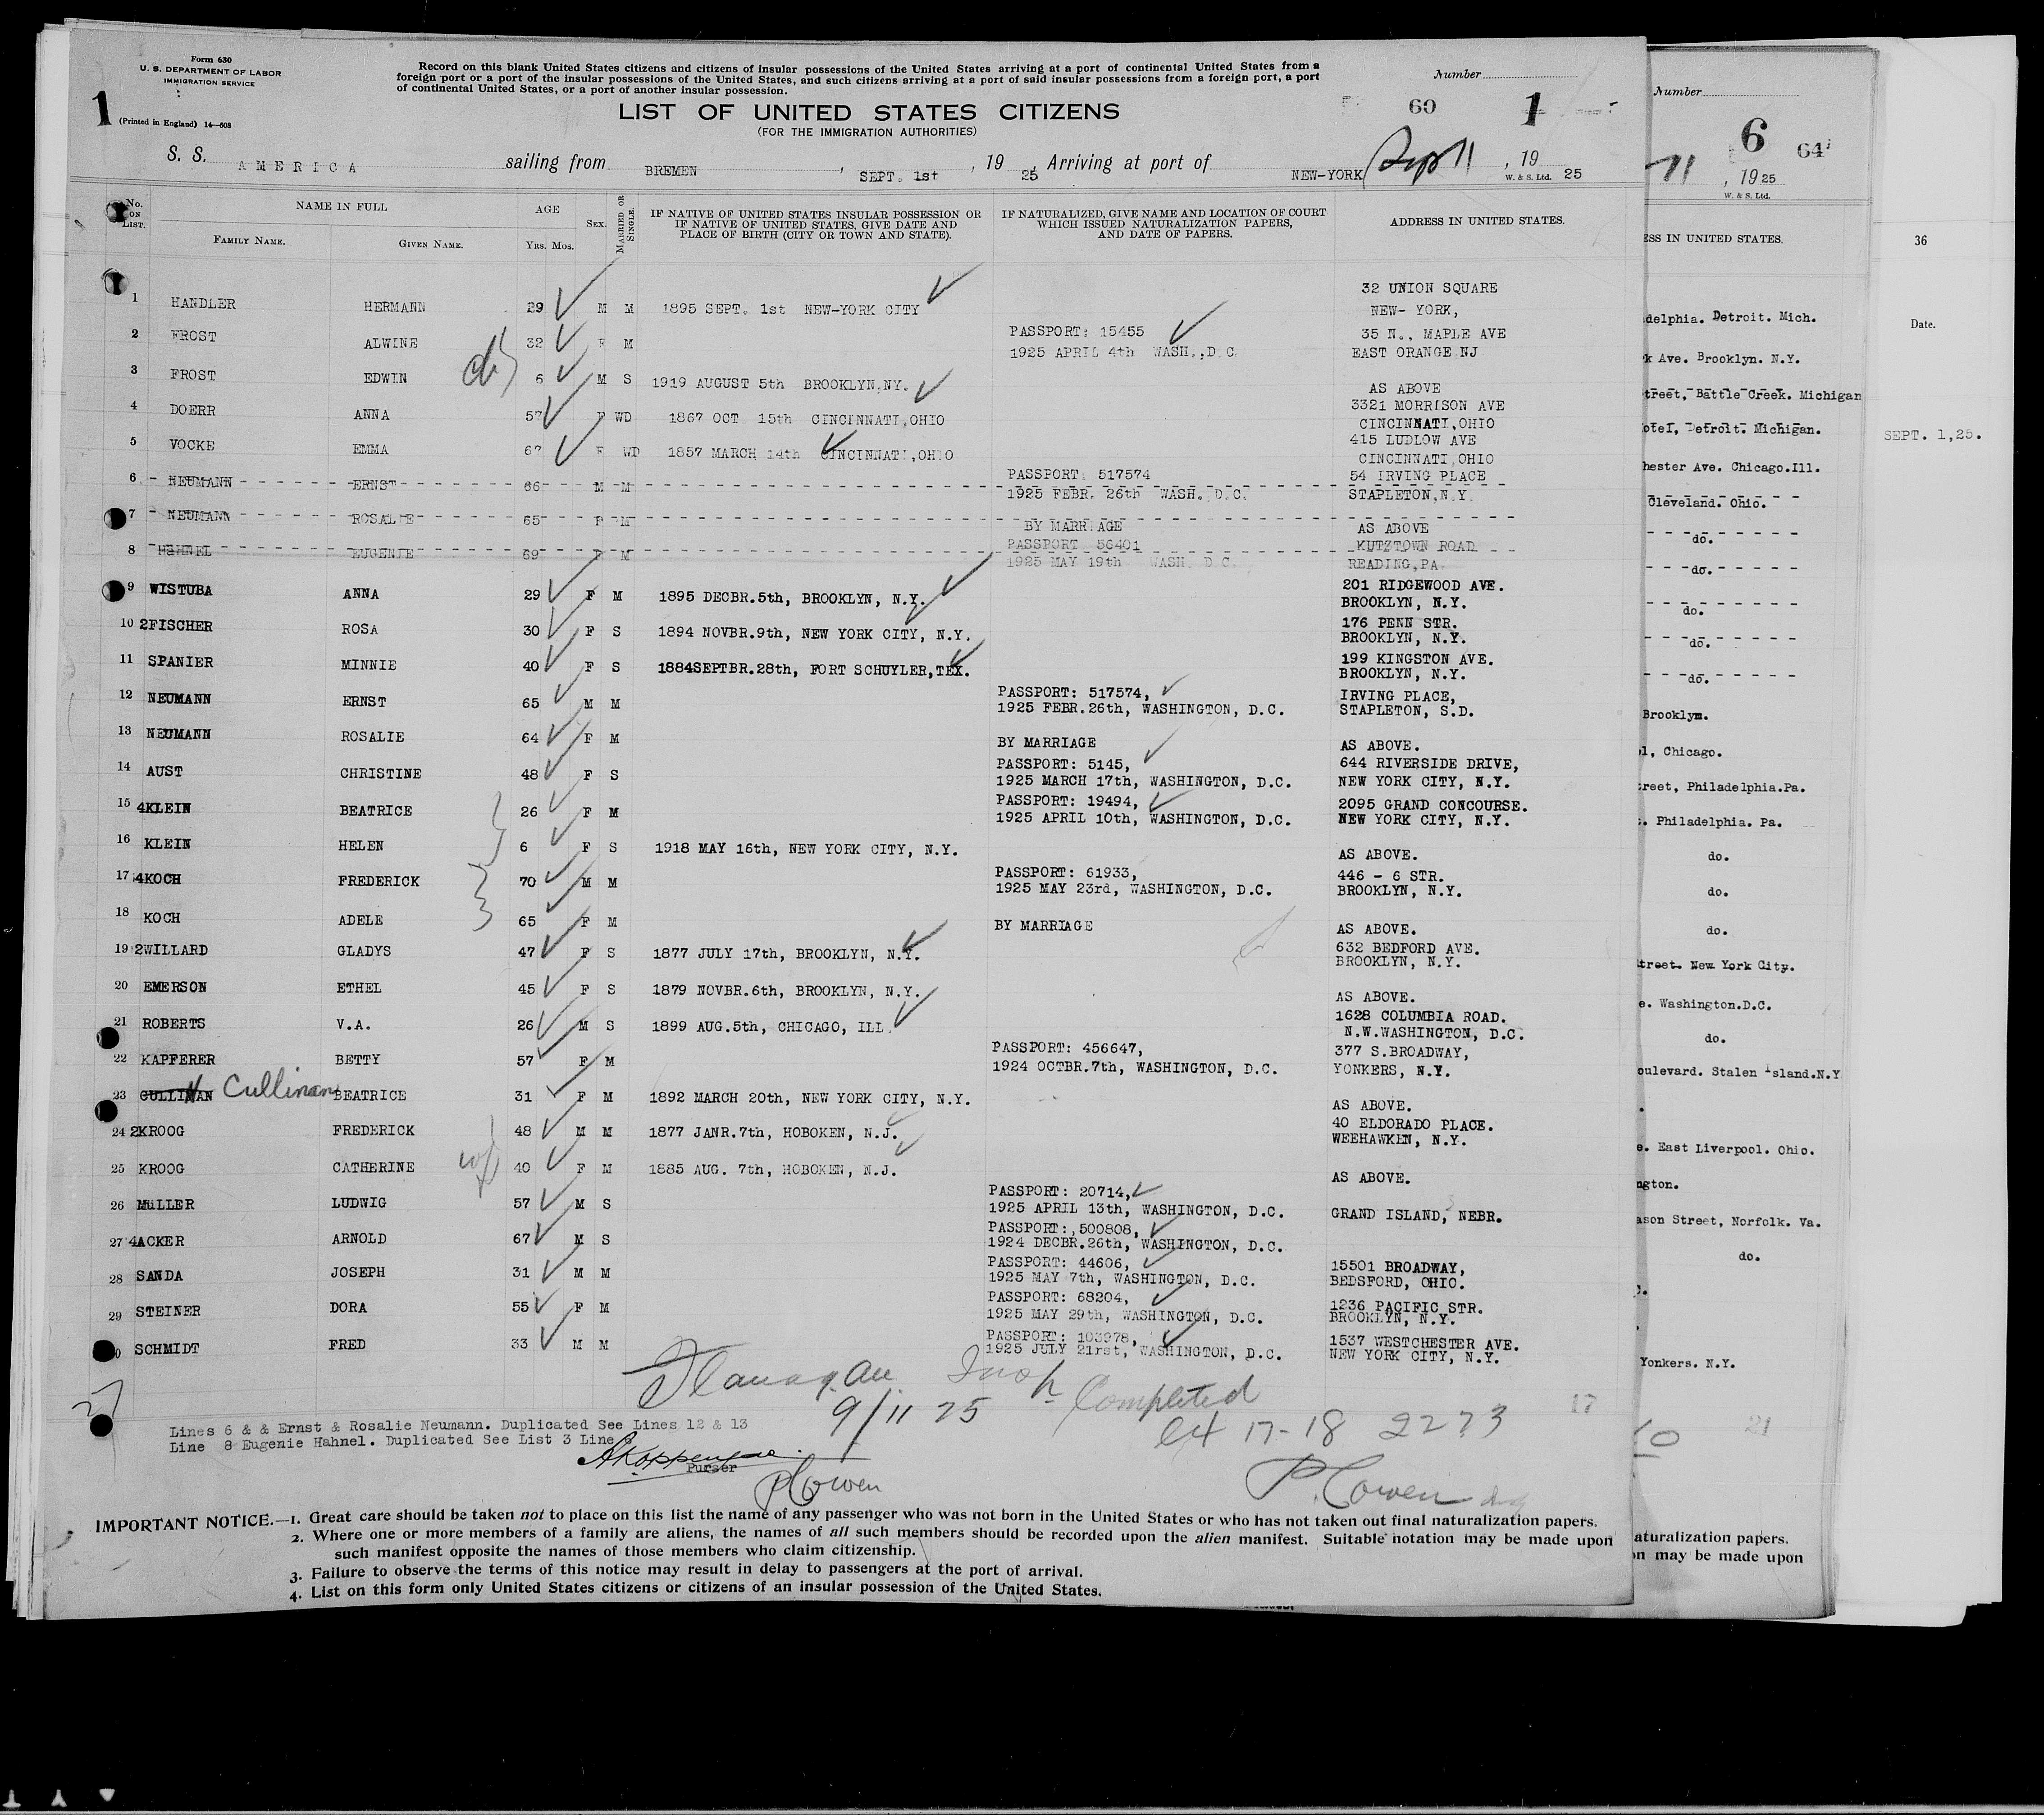 Form 630
U. S. DEPARTMENT OF LABOR
IMMIGRATION SERVICE
1
(Printed in England) 14—608
Record on this blank United States citizens and citizens of insular possessions of the United States arriving at a port of continental United States from a
foreign port or a port of the insular possessions of the United States, and such citizens arriving at a port of said insular possessions from a foreign port, a port
of continental United States, or a port of another insular possession.
LIST OF UNITED STATES CITIZENS
(FOR THE IMMIGRATION AUTHORITIES)
Number
60 1
S. S. AMERICA sailing from BREMEN, SEPT. 1st, 19 25, Arriving at port of NEW-YORK Sep 11, 19 25
W. & S. Ltd.
No. on List.
NAME IN FULL
Family Name. Given Name.
AGE
Yrs. Mos.
Sex.
Married or Single.
IF NATIVE OF UNITED STATES INSULAR POSSESSION OR
IF NATIVE OF UNITED STATES, GIVE DATE AND
PLACE OF BIRTH (CITY OR TOWN AND STATE).
IF NATURALIZED, GIVE NAME AND LOCATION OF COURT
WHICH ISSUED NATURALIZATION PAPERS,
AND DATE OF PAPERS.
ADDRESS IN UNITED STATES.
1 HANDLER HERMANN 29 M M 1895 SEPT. 1st NEW-YORK CITY 32 UNION SQUARE
NEW- YORK,
2 FROST ALWINE 32 F M PASSPORT: 15455 35 N., MAPLE AVE
1925 APRIL 4th WASH.,D.C EAST ORANGE NJ
3 FROST EDWIN 6 M S 1919 AUGUST 5th BROOKLYN.NY. AS ABOVE
4 DOERR ANNA 57 F WD 1867 OCT 15th CINCINNATI,OHIO 3321 MORRISON AVE
CINCINNATI,OHIO
5 VOCKE EMMA 67 F WD 1857 MARCH 14th CINCINNATI,OHIO 415 LUDLOW AVE
CINCINNATI,OHIO
6 NEUMANN ERNST 66 M M PASSPORT: 517574 54 IRVING PLACE
1925 FEBR. 26th WASH. D.C. STAPLETON,N.Y.
7 NEUMANN ROSALIE 65 F M BY MARRIAGE AS ABOVE
8 HAHNEL EUGENIE 69 F M PASSPORT 56401 KUTZTOWN ROAD
1925 MAY 19th WASH. D.C. READING,PA.
9 WISTUBA ANNA 29 F M 1895 DECBR.5th, BROOKLYN, N.Y. 201 RIDGEWOOD AVE.
BROOKLYN, N.Y.
10 2FISCHER ROSA 30 F S 1894 NOVBR.9th, NEW YORK CITY, N.Y. 176 PENN STR.
BROOKLYN, N.Y.
11 SPANIER MINNIE 40 F S 1884SEPTBR.28th, FORT SCHUYLER,TEX. 199 KINGSTON AVE.
BROOKLYN, N.Y.
12 NEUMANN ERNST 65 M M PASSPORT: 517574, IRVING PLACE,
1925 FEBR.26th, WASHINGTON, D.C. STAPLETON, S.D.
13 NEUMANN ROSALIE 64 F M BY MARRIAGE AS ABOVE.
14 AUST CHRISTINE 48 F S PASSPORT: 5145, 644 RIVERSIDE DRIVE,
1925 MARCH 17th, WASHINGTON, D.C. NEW YORK CITY, N.Y.
15 4KLEIN BEATRICE 26 F M PASSPORT: 19494, 2095 GRAND CONCOURSE.
1925 APRIL 10th, WASHINGTON, D.C. NEW YORK CITY, N.Y.
16 KLEIN HELEN 6 F S 1918 MAY 16th, NEW YORK CITY, N.Y. AS ABOVE.
17 4KOCH FREDERICK 70 M M PASSPORT: 61933, 446 - 6 STR.
1925 MAY 23rd, WASHINGTON, D.C. BROOKLYN, N.Y.
18 KOCH ADELE 65 F M BY MARRIAGE AS ABOVE.
19 2WILLARD GLADYS 47 F S 1877 JULY 17th, BROOKLYN, N.Y. 632 BEDFORD AVE.
BROOKLYN, N.Y.
20 EMERSON ETHEL 45 F S 1879 NOVBR.6th, BROOKLYN, N.Y. AS ABOVE.
21 ROBERTS V.A. 26 M S 1899 AUG.5th, CHICAGO, ILL. 1628 COLUMBIA ROAD.
N.W.WASHINGTON, D.C.
22 KAPFERER BETTY 57 F M PASSPORT: 456647, 377 S.BROADWAY,
1924 OCTBR.7th, WASHINGTON, D.C. YONKERS, N.Y.
23 CULLIMAN Cullinan BEATRICE 31 F M 1892 MARCH 20th, NEW YORK CITY, N.Y. AS ABOVE.
24 2KROOG FREDERICK 48 M M 1877 JANR.7th, HOBOKEN, N.J. 40 ELDORADO PLACE.
WEEHAWKEN, N.Y.
25 KROOG CATHERINE 40 F M 1885 AUG. 7th, HOBOKEN, N.J. AS ABOVE.
26 MüLLER LUDWIG 57 M S PASSPORT: 20714, GRAND ISLAND, NEBR.
1925 APRIL 13th, WASHINGTON, D.C.
27 4ACKER ARNOLD 67 M S PASSPORT:,500808,
1924 DECBR.26th, WASHINGTON, D.C.
28 SANDA JOSEPH 31 M M PASSPORT: 44606, 15501 BROADWAY,
1925 MAY 7th, WASHINGTON, D.C. BEDSFORD, OHIO.
29 STEINER DORA 55 F M PASSPORT: 68204, 1236 PACIFIC STR.
1925 MAY 29th, WASHINGTON, D.C. BROOKLYN, N.Y.
0 SCHMIDT FRED 33 M M PASSPORT: 103978, 1537 WESTCHESTER AVE.
1925 JULY 21rst, WASHINGTON, D.C. NEW YORK CITY, N.Y.
Flanagan Insp
9/11 25 Completed
17-18 2273
17
Lines 6 & & Ernst & Rosalie Neumann. Duplicated See Lines 12 & 13
Line 8 Eugenie Hahnel. Duplicated See List 3 Line
Purser
P Cowen
P. Cowen
IMPORTANT NOTICE.—1. Great care should be taken not to place on this list the name of any passenger who was not born in the United States or who has not taken out final naturalization papers.
2. Where one or more members of a family are aliens, the names of all such members should be recorded upon the alien manifest. Suitable notation may be made upon
such manifest opposite the names of those members who claim citizenship.
3. Failure to observe the terms of this notice may result in delay to passengers at the port of arrival.
4. List on this form only United States citizens or citizens of an insular possession of the United States.
Number
6 64
11, 1925
W. & S. Ltd.
ESS IN UNITED STATES.
delphia. Detroit. Mich.
k Ave. Brooklyn. N.Y.
treet, Battle Creek. Michigan
otel, Detroit. Michigan.
hester Ave. Chicago.Ill.
Cleveland. Ohio.
do.
do.
do.
do.
do.
Brooklyn.
l, Chicago.
reet, Philadelphia.Pa.
. Philadelphia. Pa.
do.
do.
do.
treet. New York City.
e. Washington.D.C.
do.
oulevard. Stalen Island.N.Y
e. East Liverpool. Ohio.
ngton.
ason Street, Norfolk. Va.
do.
Yonkers. N.Y.
21
aturalization papers.
n may be made upon
36
Date.
SEPT. 1,25.